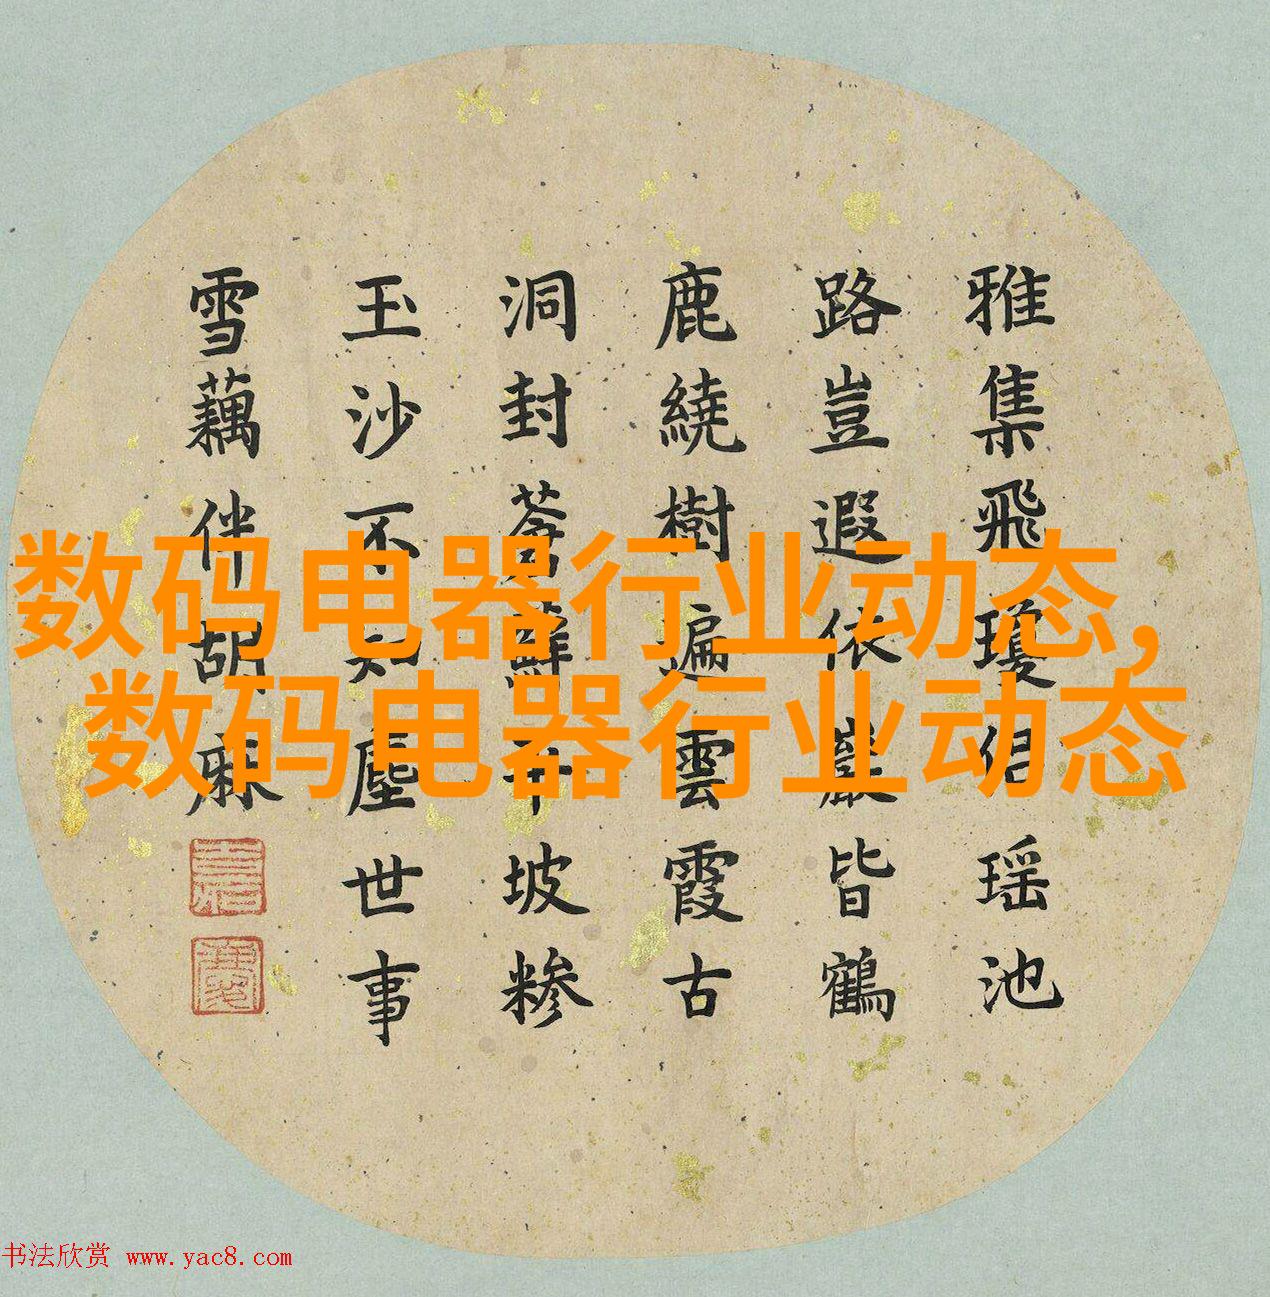 雅集飛瓊侣瑶池
路豈遐依巖皆鶴
鹿繞樹遍雲霞古
洞封蒼蘚平坡糝
玉沙不知塵世事
雪藕伴胡麻
数码电器行业动态,
数码电器行业动态
书法欣赏 www.yac8.com